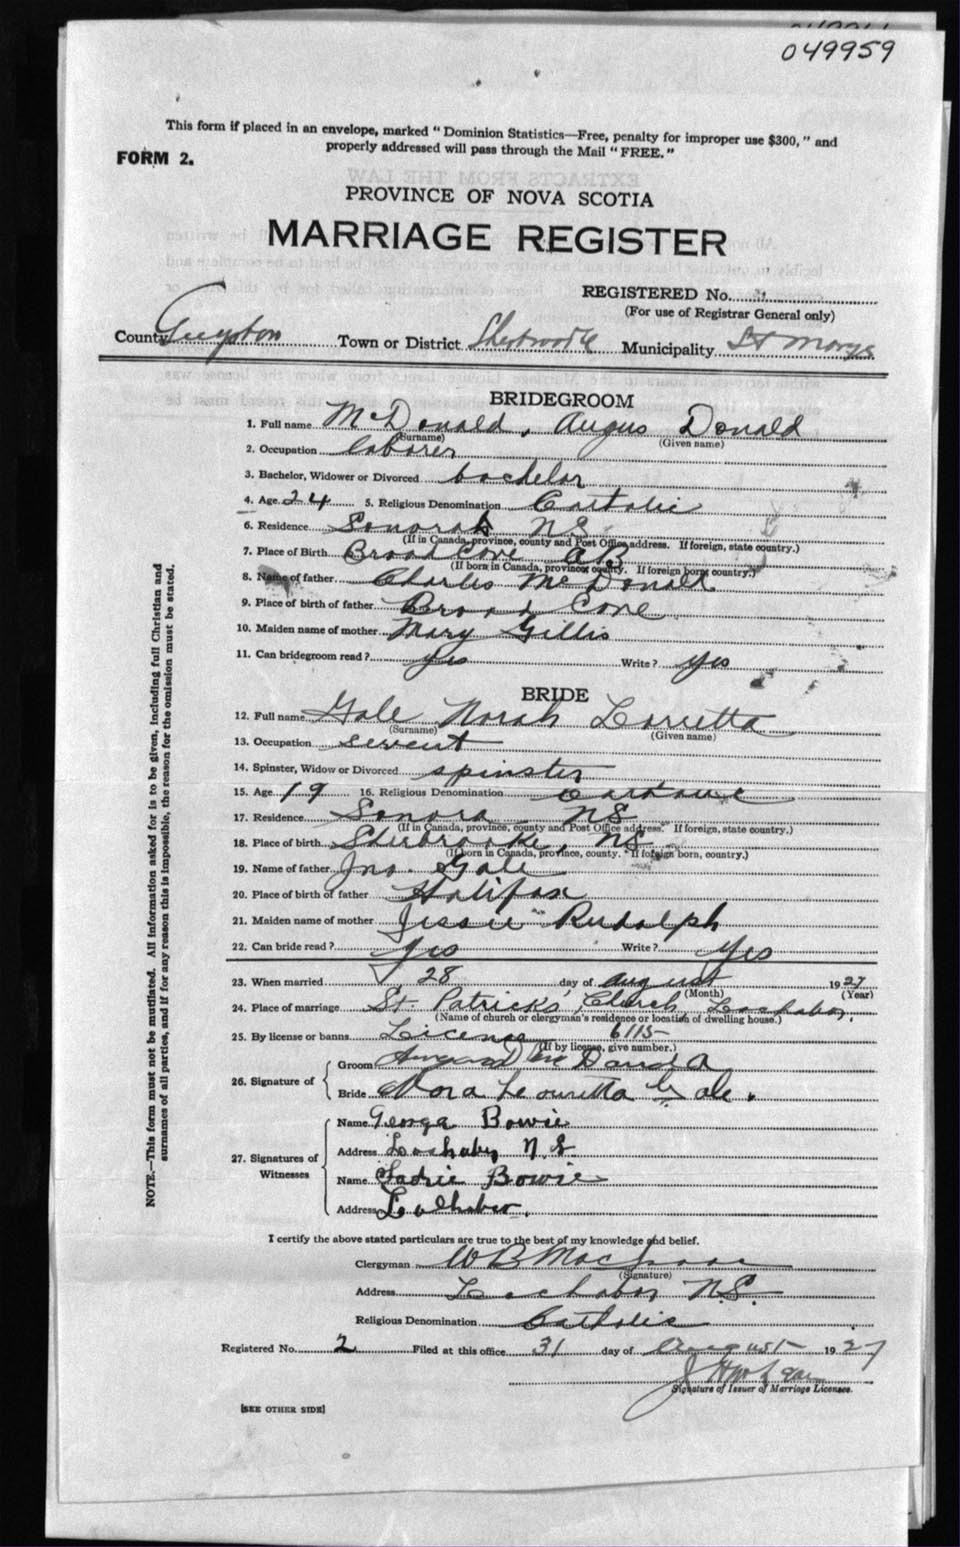 049959
This form if placed in an envelope, marked "Dominion Statistics—Free, penalty for improper use $300," and
properly addressed will pass through the Mail "FREE."
FORM 2.
PROVINCE OF NOVA SCOTIA
MARRIAGE REGISTER
REGISTERED No.
(For use of Registrar General only)
County Guysboro Town or District Sherbrooke Municipality St Marys
BRIDEGROOM
1. Full name McDonald, Angus Donald
(Surname) (Given name)
2. Occupation laborer
3. Bachelor, Widower or Divorced bachelor
4. Age 24 5. Religious Denomination Catholic
6. Residence Sonorah NS
(If in Canada, province, county and Post Office address. If foreign, state country.)
7. Place of Birth Broad Cove CB
(If born in Canada, province, county. If foreign born, country.)
8. Name of father Charles McDonald
9. Place of birth of father Broad Cove
10. Maiden name of mother Mary Gillis
11. Can bridegroom read? yes Write? yes
BRIDE
12. Full name Gale Norah Lorretta
(Surname) (Given name)
13. Occupation servent
14. Spinster, Widow or Divorced spinster
15. Age 19 16. Religious Denomination Catholic
17. Residence Sonora NS
(If in Canada, province, county and Post Office address. If foreign, state country.)
18. Place of birth Sherbrooke, NS
(If born in Canada, province, county. If foreign born, country.)
19. Name of father Jno. Gale
20. Place of birth of father Halifax
21. Maiden name of mother Jessie Rudolph
22. Can bride read? yes Write? yes
23. When married 28 day of august 1927
(Month) (Year)
24. Place of marriage St. Patrick's Church Lochaber.
(Name of church or clergyman's residence or location of dwelling house.)
25. By license or banns License 6115
(If by license, give number.)
26. Signature of
Groom Angus D McDonald
Bride Nora Louretta Gale.
27. Signatures of Witnesses
Name George Bowie
Address Lochaber N.S
Name Sadie Bowie
Address Lochaber.
I certify the above stated particulars are true to the best of my knowledge and belief.
Clergyman WB MacIsaac
(Signature)
Address Lochaber N.S.
Religious Denomination Catholic
Registered No. 2 Filed at this office 31 day of August 1927
Signature of Issuer of Marriage Licenses.
[SEE OTHER SIDE]
NOTE.—This form must not be mutilated. All information asked for is to be given, including full Christian and
surnames of all parties, and if for any reason this is impossible, the reason for the omission must be stated.